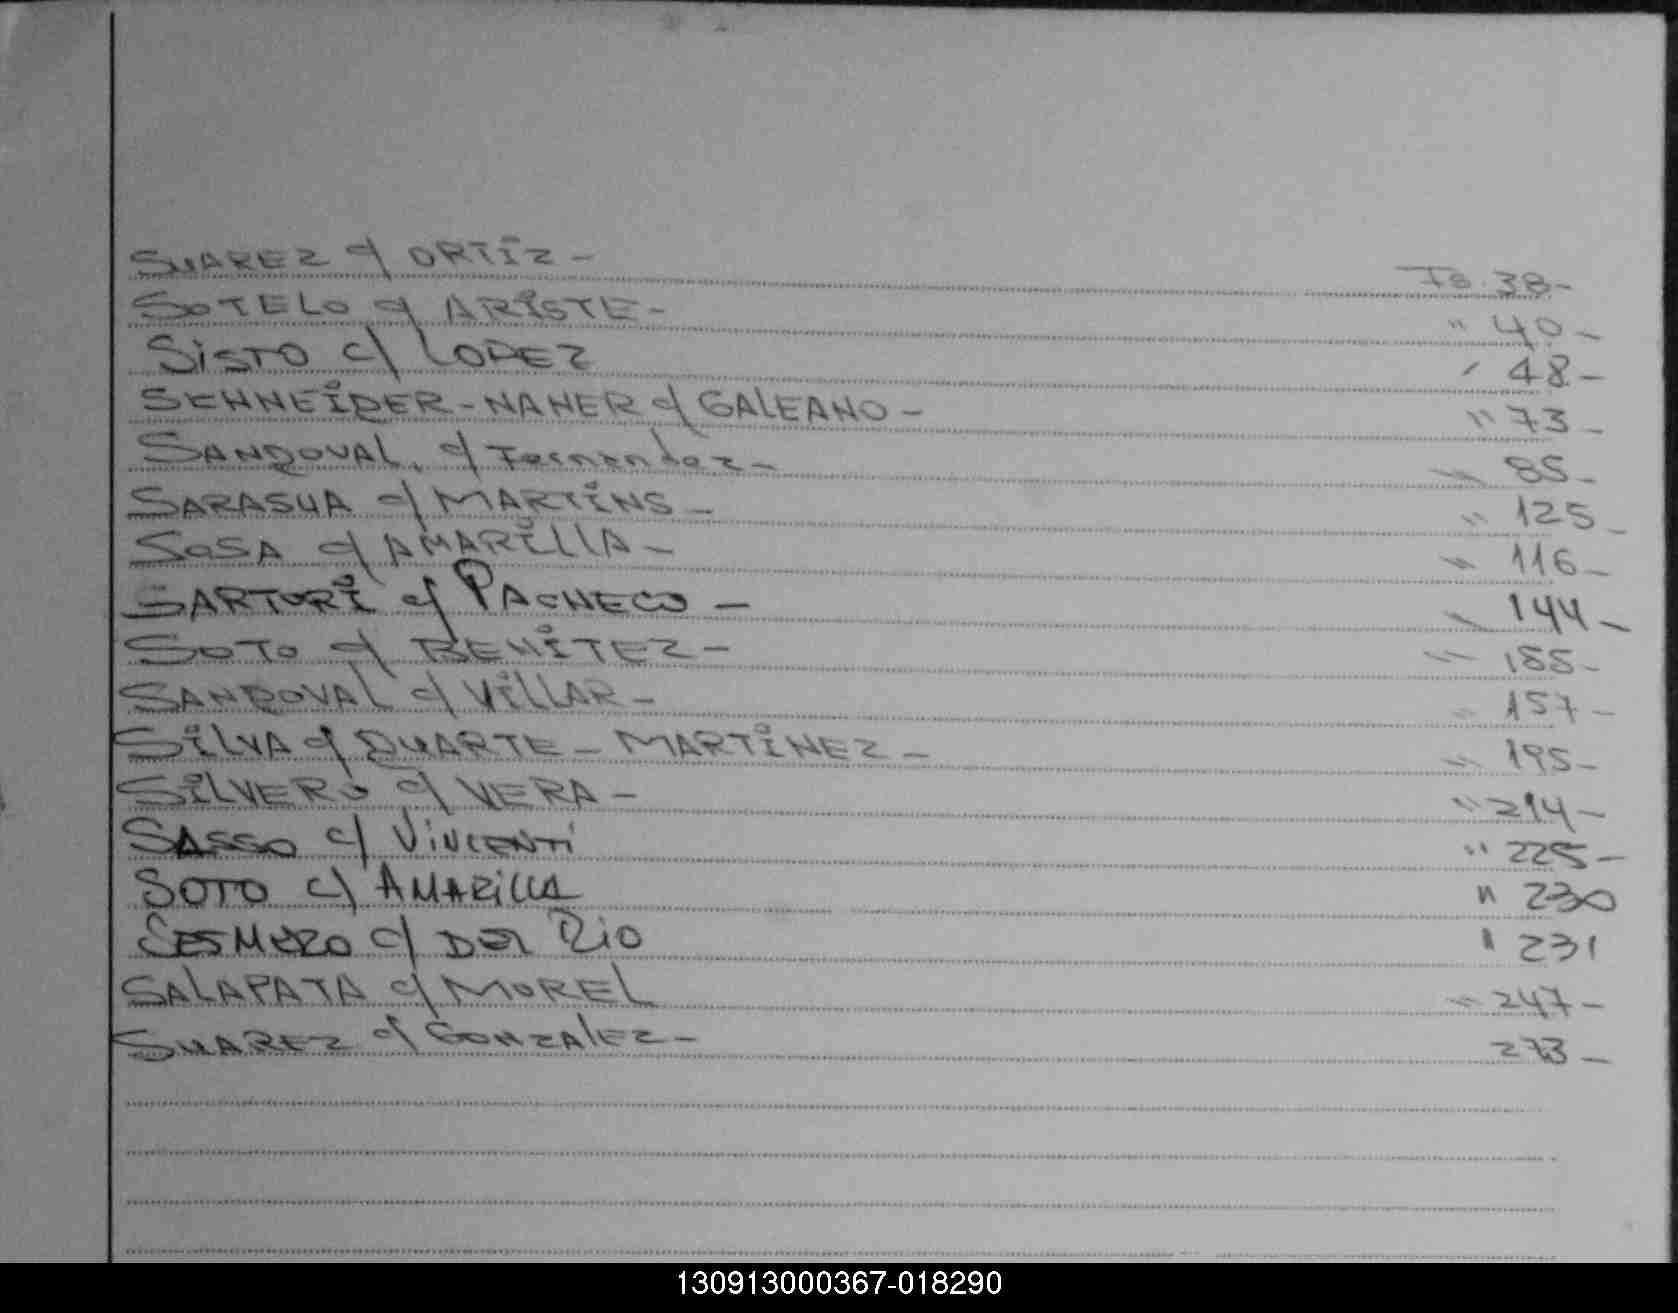 SUAREZ c/ ORTIZ - Fs. 38-
SOTELO c/ ARISTE - " 40-
SISTO c/ LOPEZ ' 48-
SCHNEIDER-NAHER c/ GALEANO - " 73-
SANDOVAL. c/ Fernandez- " 85-
SARASUA c/ MARTINS - " 125-
SOSA c/ AMARILLA - " 116-
SARTORI c/ PACHECO - " 144-
SOTO c/ BENITEZ - " 155-
SANDOVAL c/ VILLAR - " 157-
SILVA c/ DUARTE - MARTINEZ - " 195-
SILVERO c/ VERA - " 214-
SASSO c/ VINCENTI " 225-
SOTO c/ AMARILLA " 230
c/ DEL RIO " 231
SALAPATA c/ MOREL " 247-
SUAREZ c/ GONZALEZ - 273-
130913000367-018290